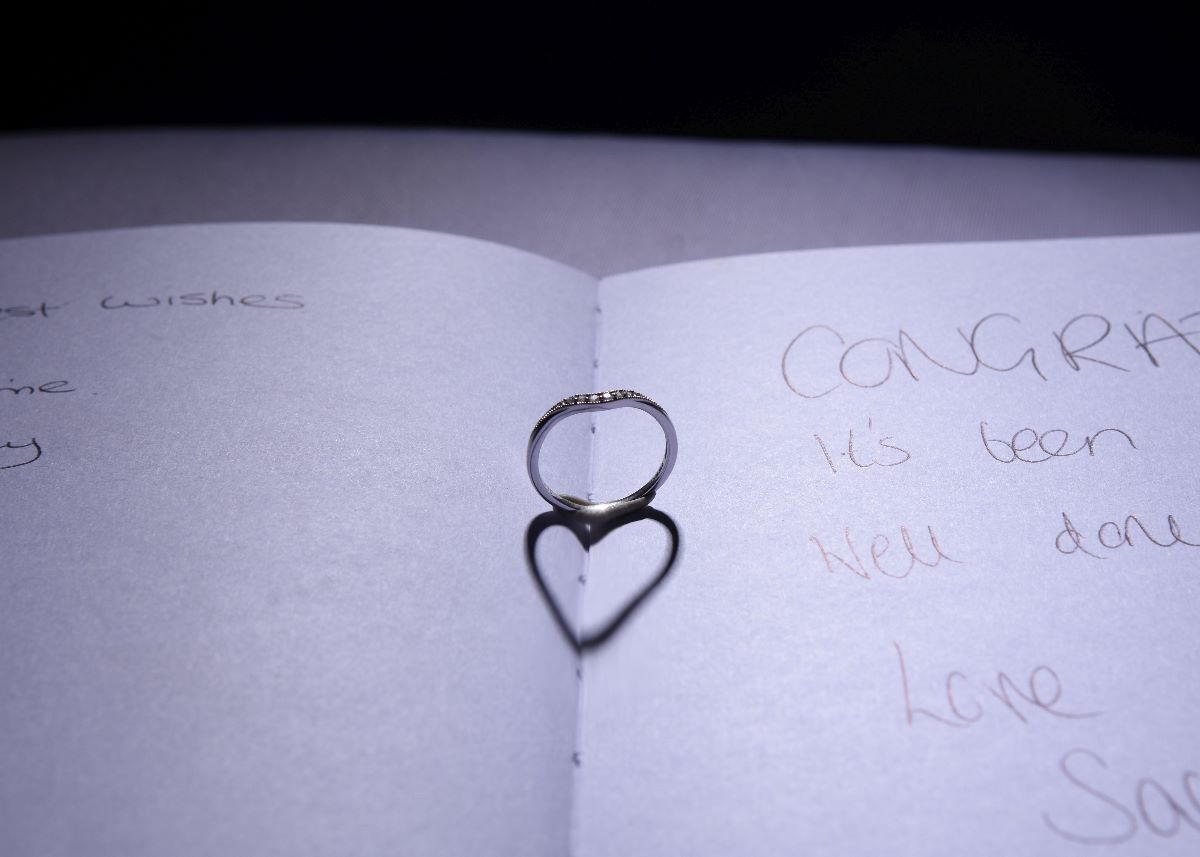 est wishes
ine.
y
CONGRAT
It's been
Well done
Love
Sa